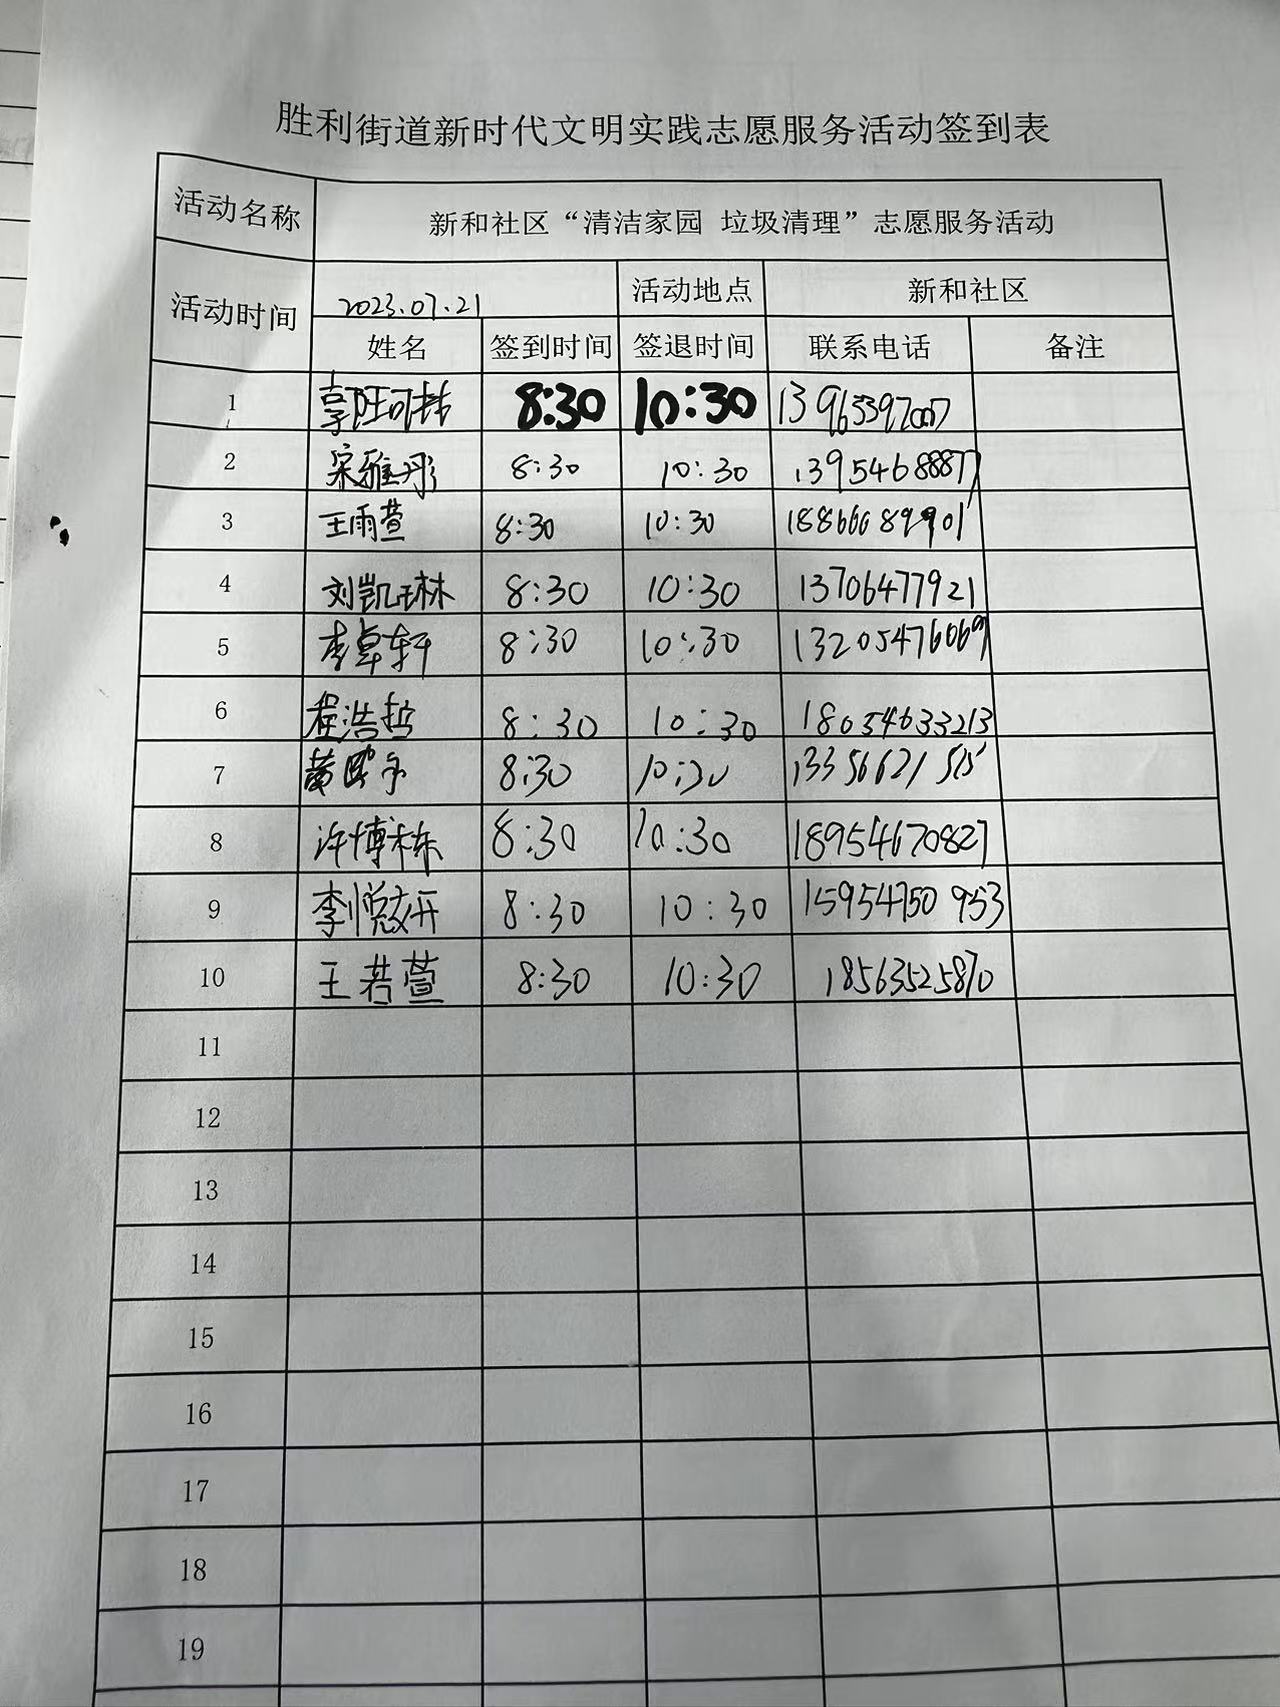 胜利街道新时代文明实践志愿服务活动签到表
活动名称 新和社区“清洁家园 垃圾清理”志愿服务活动
活动时间 2023.07.21 活动地点 新和社区
姓名 签到时间 签退时间 联系电话 备注
1 8:30 10:30 13963397007
2 宋雅彤 8:30 10:30 13954688877
3 王雨萱 8:30 10:30 18866689901
4 刘凯琳 8:30 10:30 13706477921
5 李卓轩 8:30 10:30 13205476069
6 程浩哲 8:30 10:30 18054633213
7 8:30 10:30 13356621515
8 许博栋 8:30 10:30 18954670827
9 李悦妍 8:30 10:30 15954750953
10 王若萱 8:30 10:30 18563525870
11
12
13
14
15
16
17
18
19